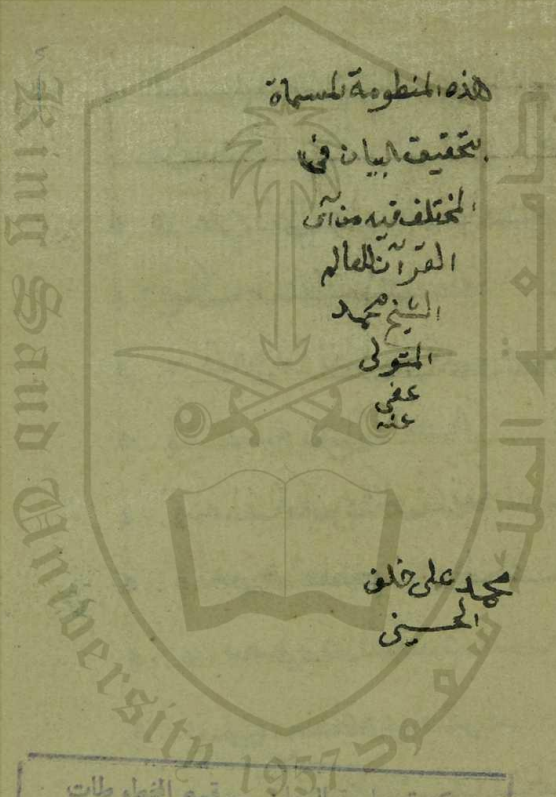 هذه المنظومة المسماة
بتحقيق البيان في
المختلف فيه من آى
القرآن للعالم
الشيخ محمد
المتولى
عفى
عنه
محمد على خلف
الحسينى
King Saud University
جامعة الملك سعود
1957
قسم المخطوطات